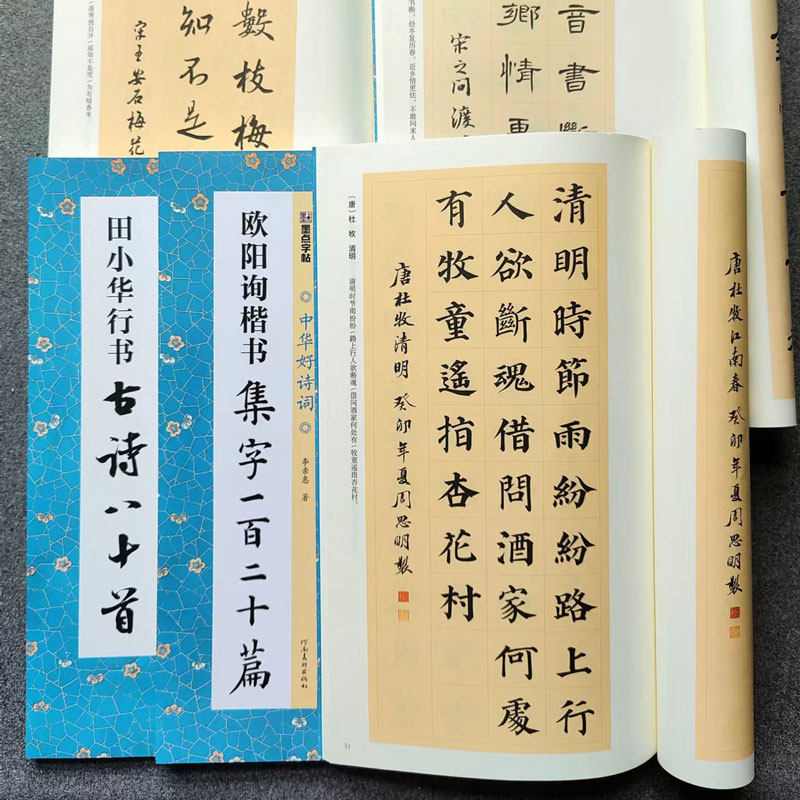 數枝梅
知不是
宋王安石梅花
凌寒独自开/遥知不是雪/为有暗香来
音書斷
鄉情更
宋之问渡
书断。经冬复历春。近乡情更怯。不敢问来人
田小华行书
古诗八十首
欧阳询楷书
集字一百二十篇
墨点字帖
中华好诗词
著
河南美术出版社
清明時節雨紛紛路上行
人欲斷魂借問酒家何處
有牧童遙指杏花村
唐杜牧清明 癸卯年夏周思明製
〔唐〕杜牧 清明
清明时节雨纷纷/路上行人欲断魂/借问酒家何处有/牧童遥指杏花村。
51
唐杜牧江南春 癸卯年夏周思明製